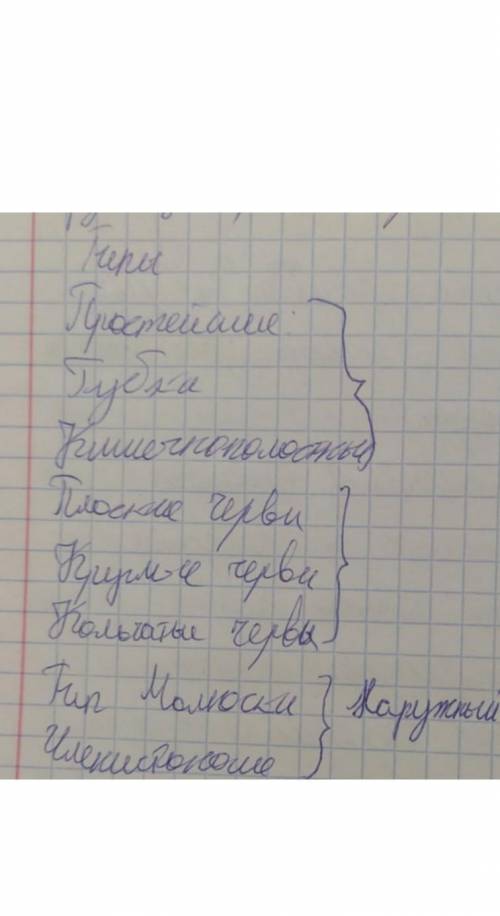 Типы
Простейшие
Губки
Кишечнополостные
Плоские черви
Круглые черви
Кольчатые червы
Тип Молюски } Наружный
Членистоногие